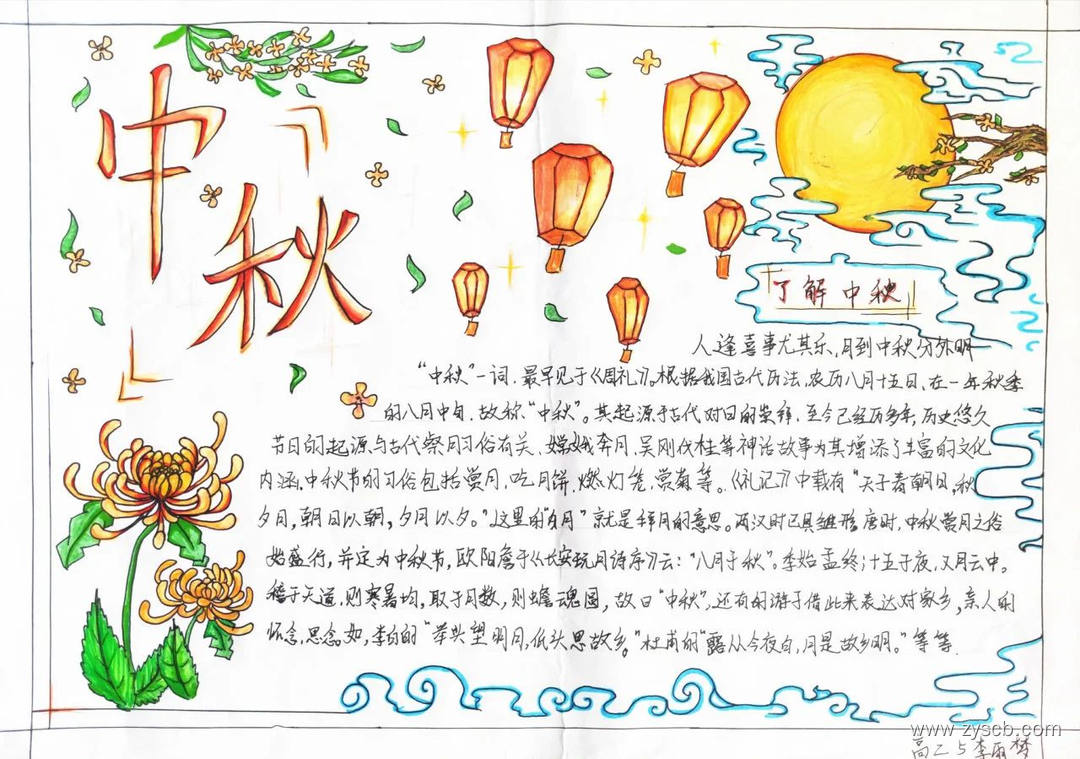 中秋
了解中秋
人逢喜事尤其乐,月到中秋分外明
“中秋”一词,最早见于《周礼》。根据我国古代历法,农历八月十五日,在一年秋季
的八月中旬,故称“中秋”。其起源于古代对日的崇拜,至今已经历多年,历史悠久
节日的起源与古代祭月习俗有关,嫦娥奔月,吴刚伐桂等神话故事为其增添了丰富的文化
内涵,中秋节的习俗包括赏月,吃月饼,燃灯笼,赏菊等。《礼记》中载有“天子春朝日,秋
夕月,朝日以朝,夕月以夕。”这里的“夕月”就是拜月的意思。两汉时已具雏形,唐时,中秋赏月之俗
始盛行,并定为中秋节,欧阳詹于《长安玩月诗序》云:“八月于秋”。季始孟终;十五于夜,又月云中。
稽于天道,则寒暑均,取于月数,则蟾魂圆,故曰“中秋”,还有的游子借此来表达对家乡,亲人的
怀念,思念。如,李白的“举头望明月,低头思故乡。”杜甫的“露从今夜白,月是故乡明。”等等.
www.zyscb.com
高二5李雨梦